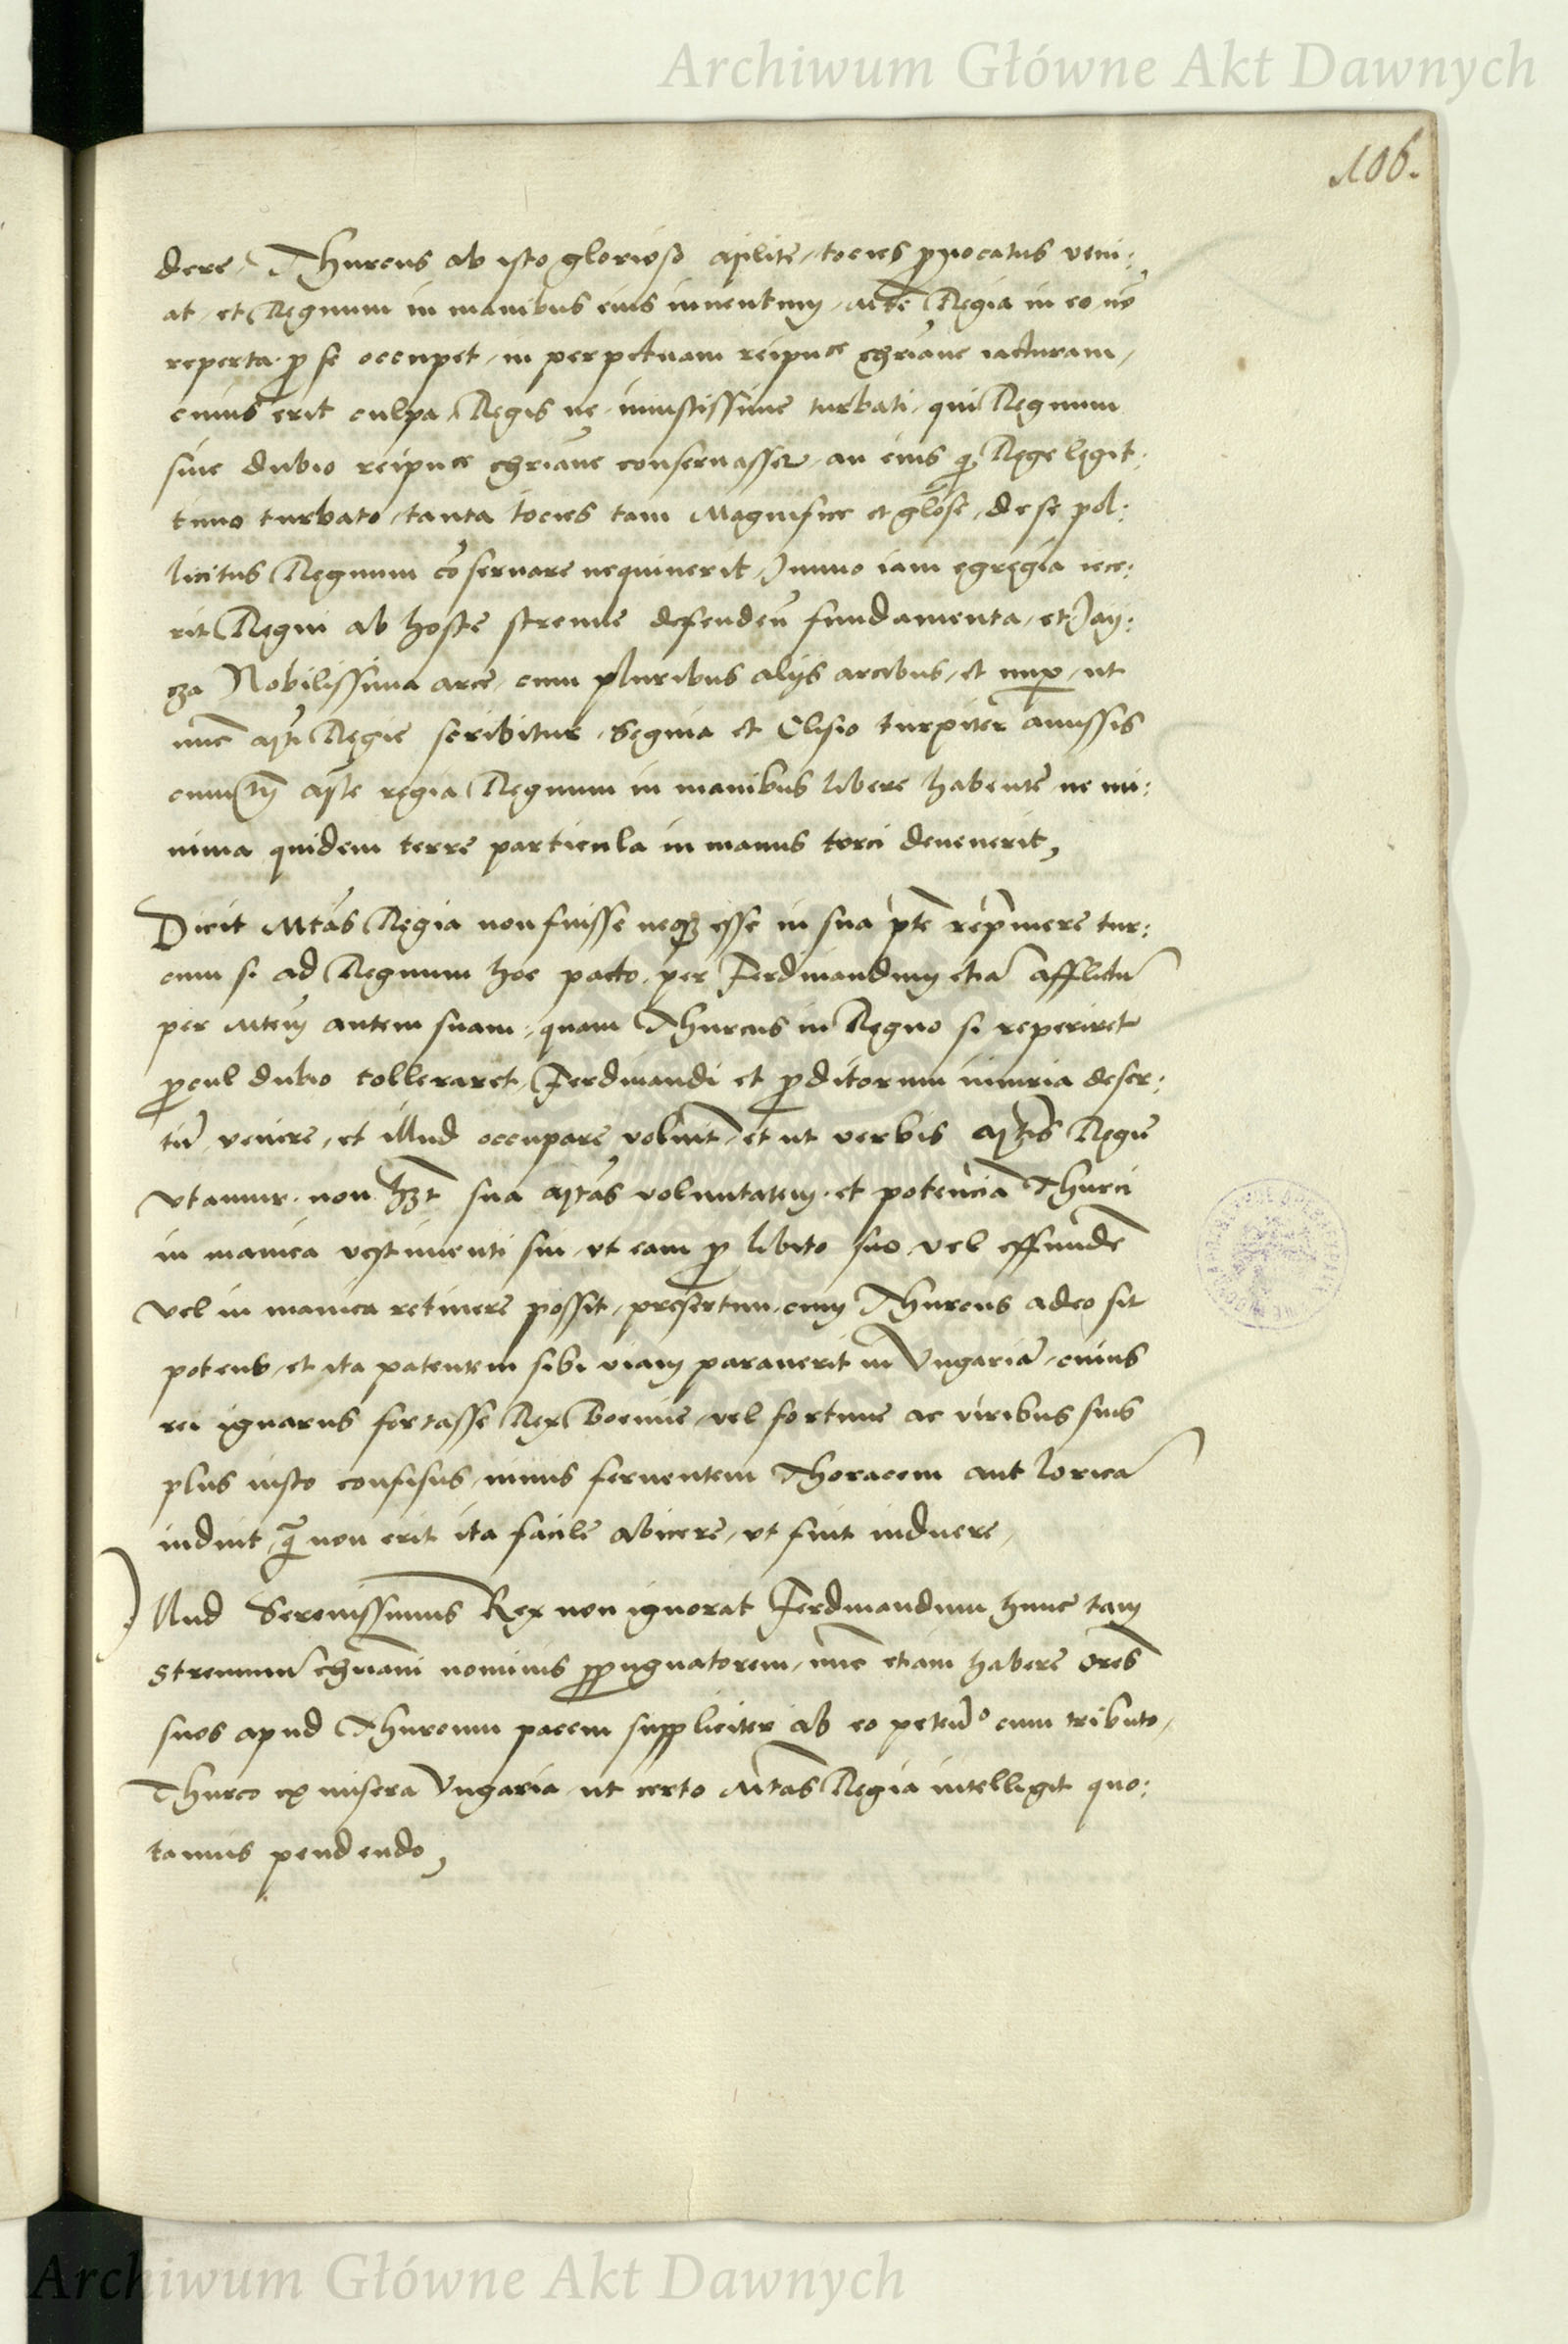 Archiwum Główne Akt Dawnych
106.
dere, Thurcus ab isto glorioso milite, tocies provocatus veni:
at, et Regnum in manibus eius inventum, Mte Regia in eo nō
reperta, pro se occupet, in perpetuam reipuce chriane iacturam,
cuius erit culpa, Regis ne iniustissime turbati, qui Regnum
sine dubio reipuce chriane conservasset, an eius qi Rege legit:
timo turbato, tanta tocies tam Magnifice et glose, de se pol:
licitus Regnum cōservare nequiverit, Immo iam egregia iece:
rit Regni ab hoste strenue defenden fundamenta, et Jay:
cza Nobilissima arce, cum pluribus alijs arcibus, et nup, ut
nunc Mti Regie scribitur, Segnia et Clisio turpiter amissis
cum tn Mste regia Regnum in manibus libere habente ne mi:
nima quidem terre particula in manus torci devenerit,
Dicit Mtas Regia non fuisse neq esse in sua pte reprimere tur:
cum si ad Regnum hoc pacto, per Ferdinandum etiā afflictū
per Mtem autem suam, quam Thurcus in Regno si reperiret
procul dubio tolleraret, Ferdinandi et proditorum iniuria deser:
tū, venire, et illud occupare voluit, et ut verbis Mtis Regie
utamur, non hzt sua Mtas voluntatem, et potenciā Thurci
in manica vestimenti sui, ut eam pro libito suo, vel effunde
vel in manica retinere possit, presertim, cum Thurcus adeo sit
potens, et ita patentem sibi viam paraverit in Ungariā, cuius
rei ignarus fortasse Rex Boemie, vel fortune ac viribus suis
plus iusto confisus, nimis ferventem Thoracem aut loricā
induit, qā non erit ita facile abicere, ut fuit induere,
Illud Serenissimus Rex non ignorat Ferdinandum hunc tam
strenuum chriani nominis propugnatorem, nunc etiam habere Ores
suos apud Thurcum pacem suppliciter ab eo petendo cum tributo,
Thurco ex misera Ungaria ut certo Mtas Regia intelligit quo:
tannis pendendo,
Archiwum Główne Akt Dawnych